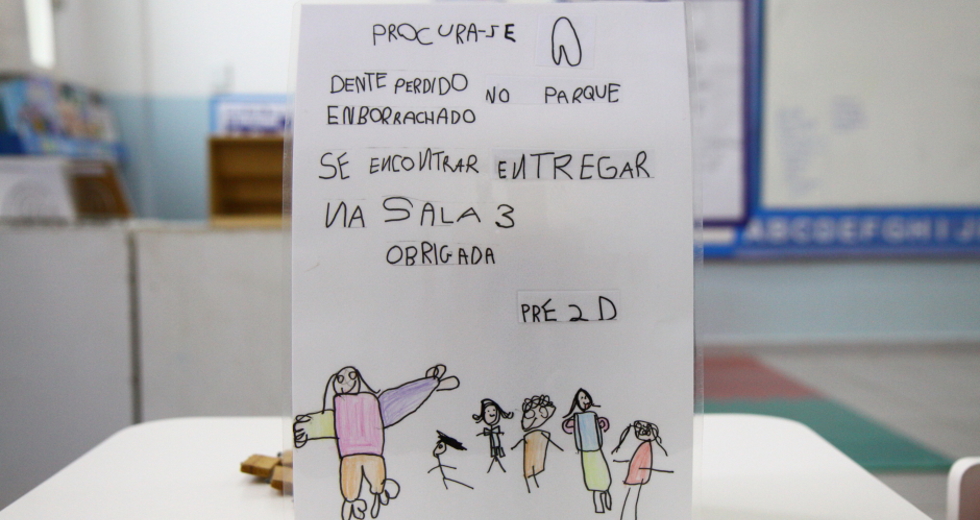 PROCURA-SE
DENTE PERDIDO NO PARQUE
ENBORRACHADO
SE ENCONTRAR ENTREGAR
NA SALA 3
OBRIGADA
PRE 2 D
ABCDEFGHIJ